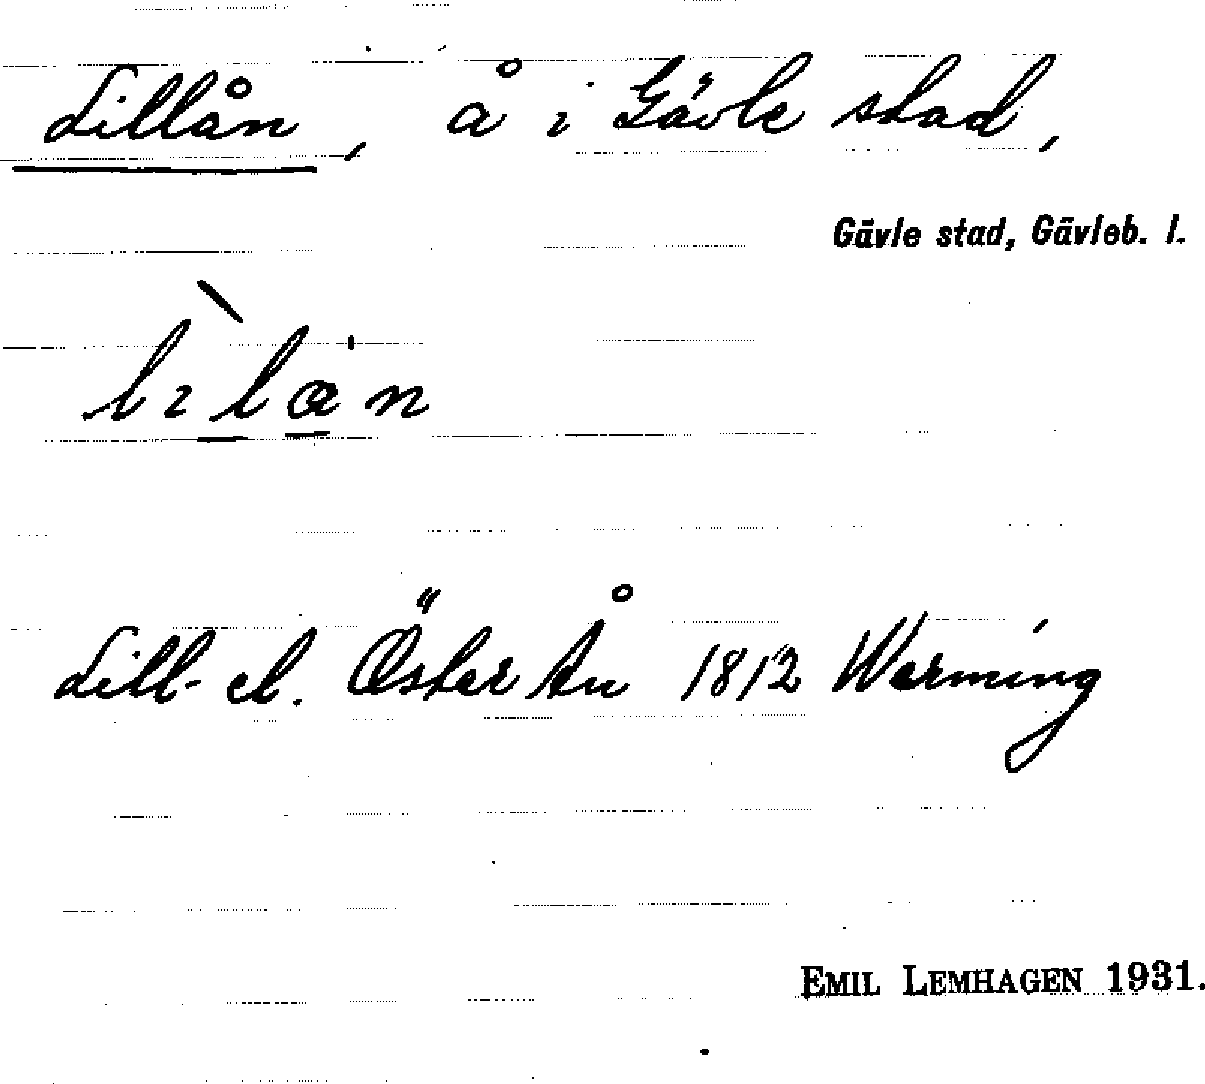 Lillån, å i Gävle stad,
Gävle stad, Gävleb. l.
Lill- el. Öster Ån 1812 Werming
EMIL LEMHAGEN 1931.